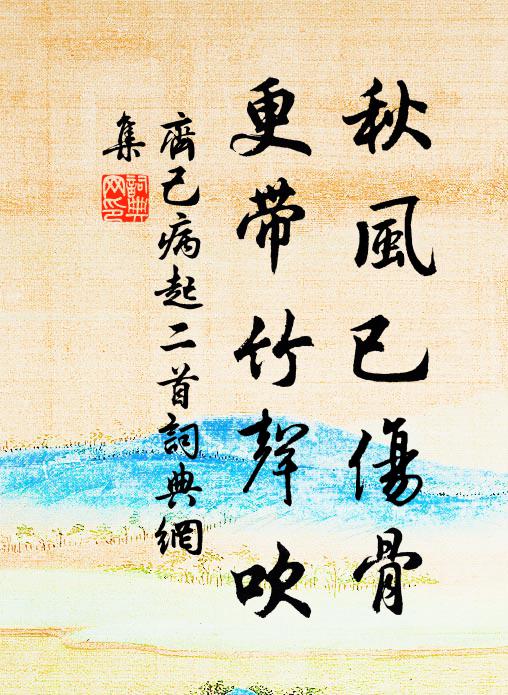 秋風已傷骨
更帶竹聲吹
齊己病起二首詞典網
集
詞典
网印